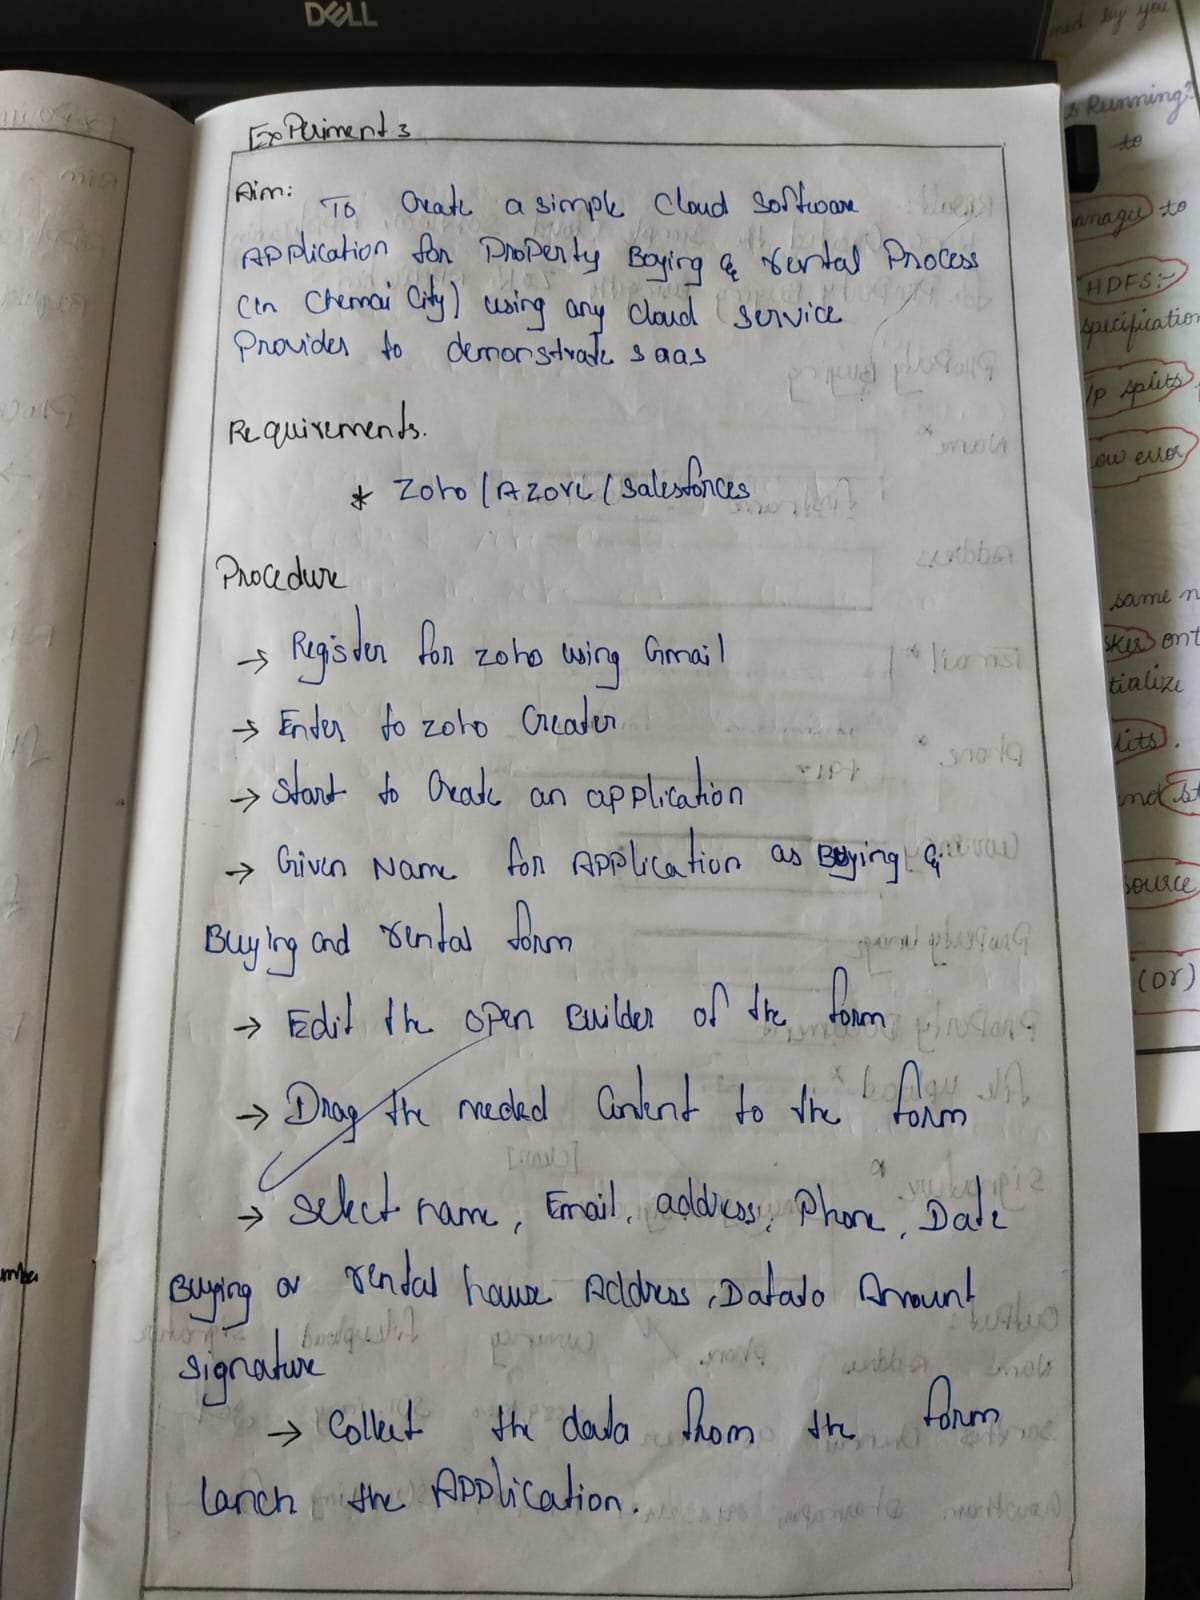 DELL
Experiment 3
Aim: To Create a simple Cloud Software
Application for Property Boying & rental Process
(in Chennai City) using any cloud service
Provider to demonstrate saas
Requirements.
* Zoho / Azore / Salesforces
Procedure
→ Register for zoho using Gmail
→ Enter to zoho Creater
→ Start to Create an application
→ Given Name for Application as Buying &
Buying and rental form
→ Edit the open Builder of the form
→ Drag the needed Content to the form
→ Select name, Email, address, Phone, Date
Buying or rental house Address, Amount
signature
→ Collect the data from the form
lanch the Application.
med by you
s Running?
to
anager to
HDFS:-
specification
/P splits
ow error
same n
sker ont
tialize
lits.
nd st
source
(or)